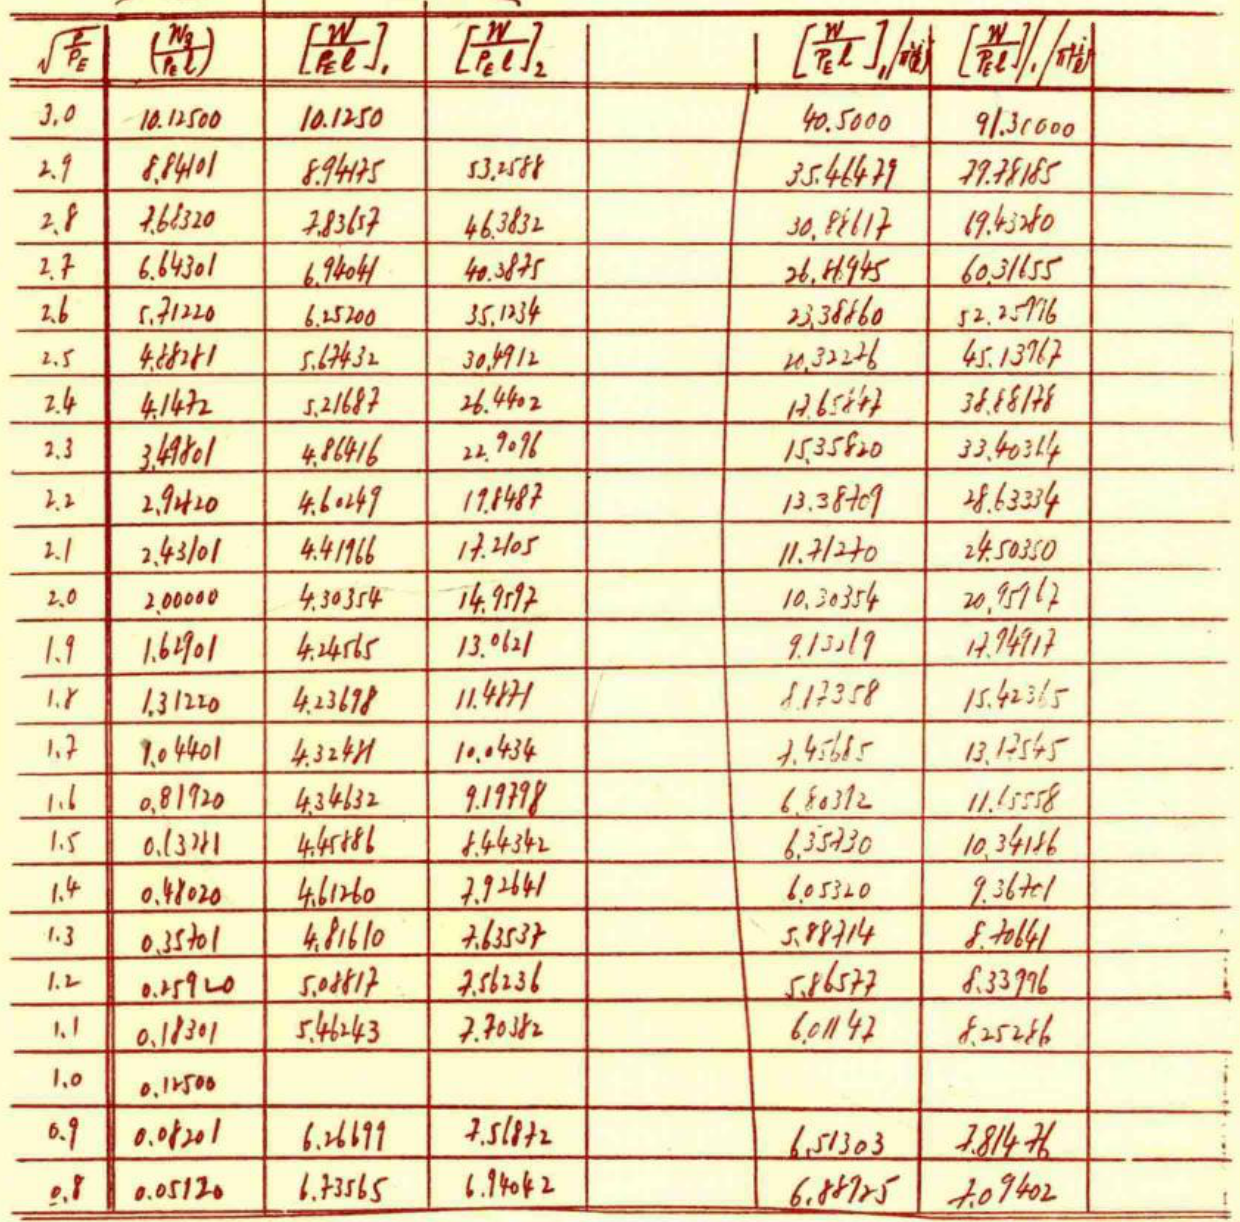 √(P/P_E) (W_q/P_E l) [W/P_E l]₁ [W/P_E l]₂ [W/P_E l]₁ [W/P_E l]
3.0 10.12500 10.1250 40.5000
2.9 8.84101 8.94175 53.2588 35.46479 79.78185
2.8 7.68320 7.83657 46.3832 30.88617 69.43280
2.7 6.64301 6.94041 40.3875 26.86945 60.31655
2.6 5.71220 6.25200 35.1234 23.38860 52.25996
2.5 4.88281 5.67432 30.4912 20.32276 45.13967
2.4 4.1472 5.21687 26.4402 17.65847 38.88178
2.3 3.49801 4.86416 22.9096 15.35820 33.40364
2.2 2.92820 4.60249 19.8487 13.38709 28.63334
2.1 2.43101 4.41966 17.2105 11.71270 24.50350
2.0 2.00000 4.30354 14.9597 10.30354 20.95967
1.9 1.62901 4.24565 13.0621 17.94917
1.8 1.31220 4.23698 11.4871 8.17358 15.42365
1.7 1.04401 4.32481 10.0434 7.45685 13.17545
1.6 0.81920 4.34632 9.19798 6.80392 11.65558
1.5 0.63281 4.45886 8.44342 6.35730 10.34186
1.4 0.48020 4.61260 7.92641 6.05320 9.36701
1.3 0.35701 4.81610 7.63537 5.88714 8.70641
1.2 0.25920 5.08817 7.56236 5.86577 8.33996
1.1 0.18301 5.46243 7.70382 6.01147 8.25286
1.0 0.12500
0.9 0.08201 6.26699 7.56872 6.51303 7.81476
0.8 0.05120 6.73565 6.94042 6.88925 7.09402